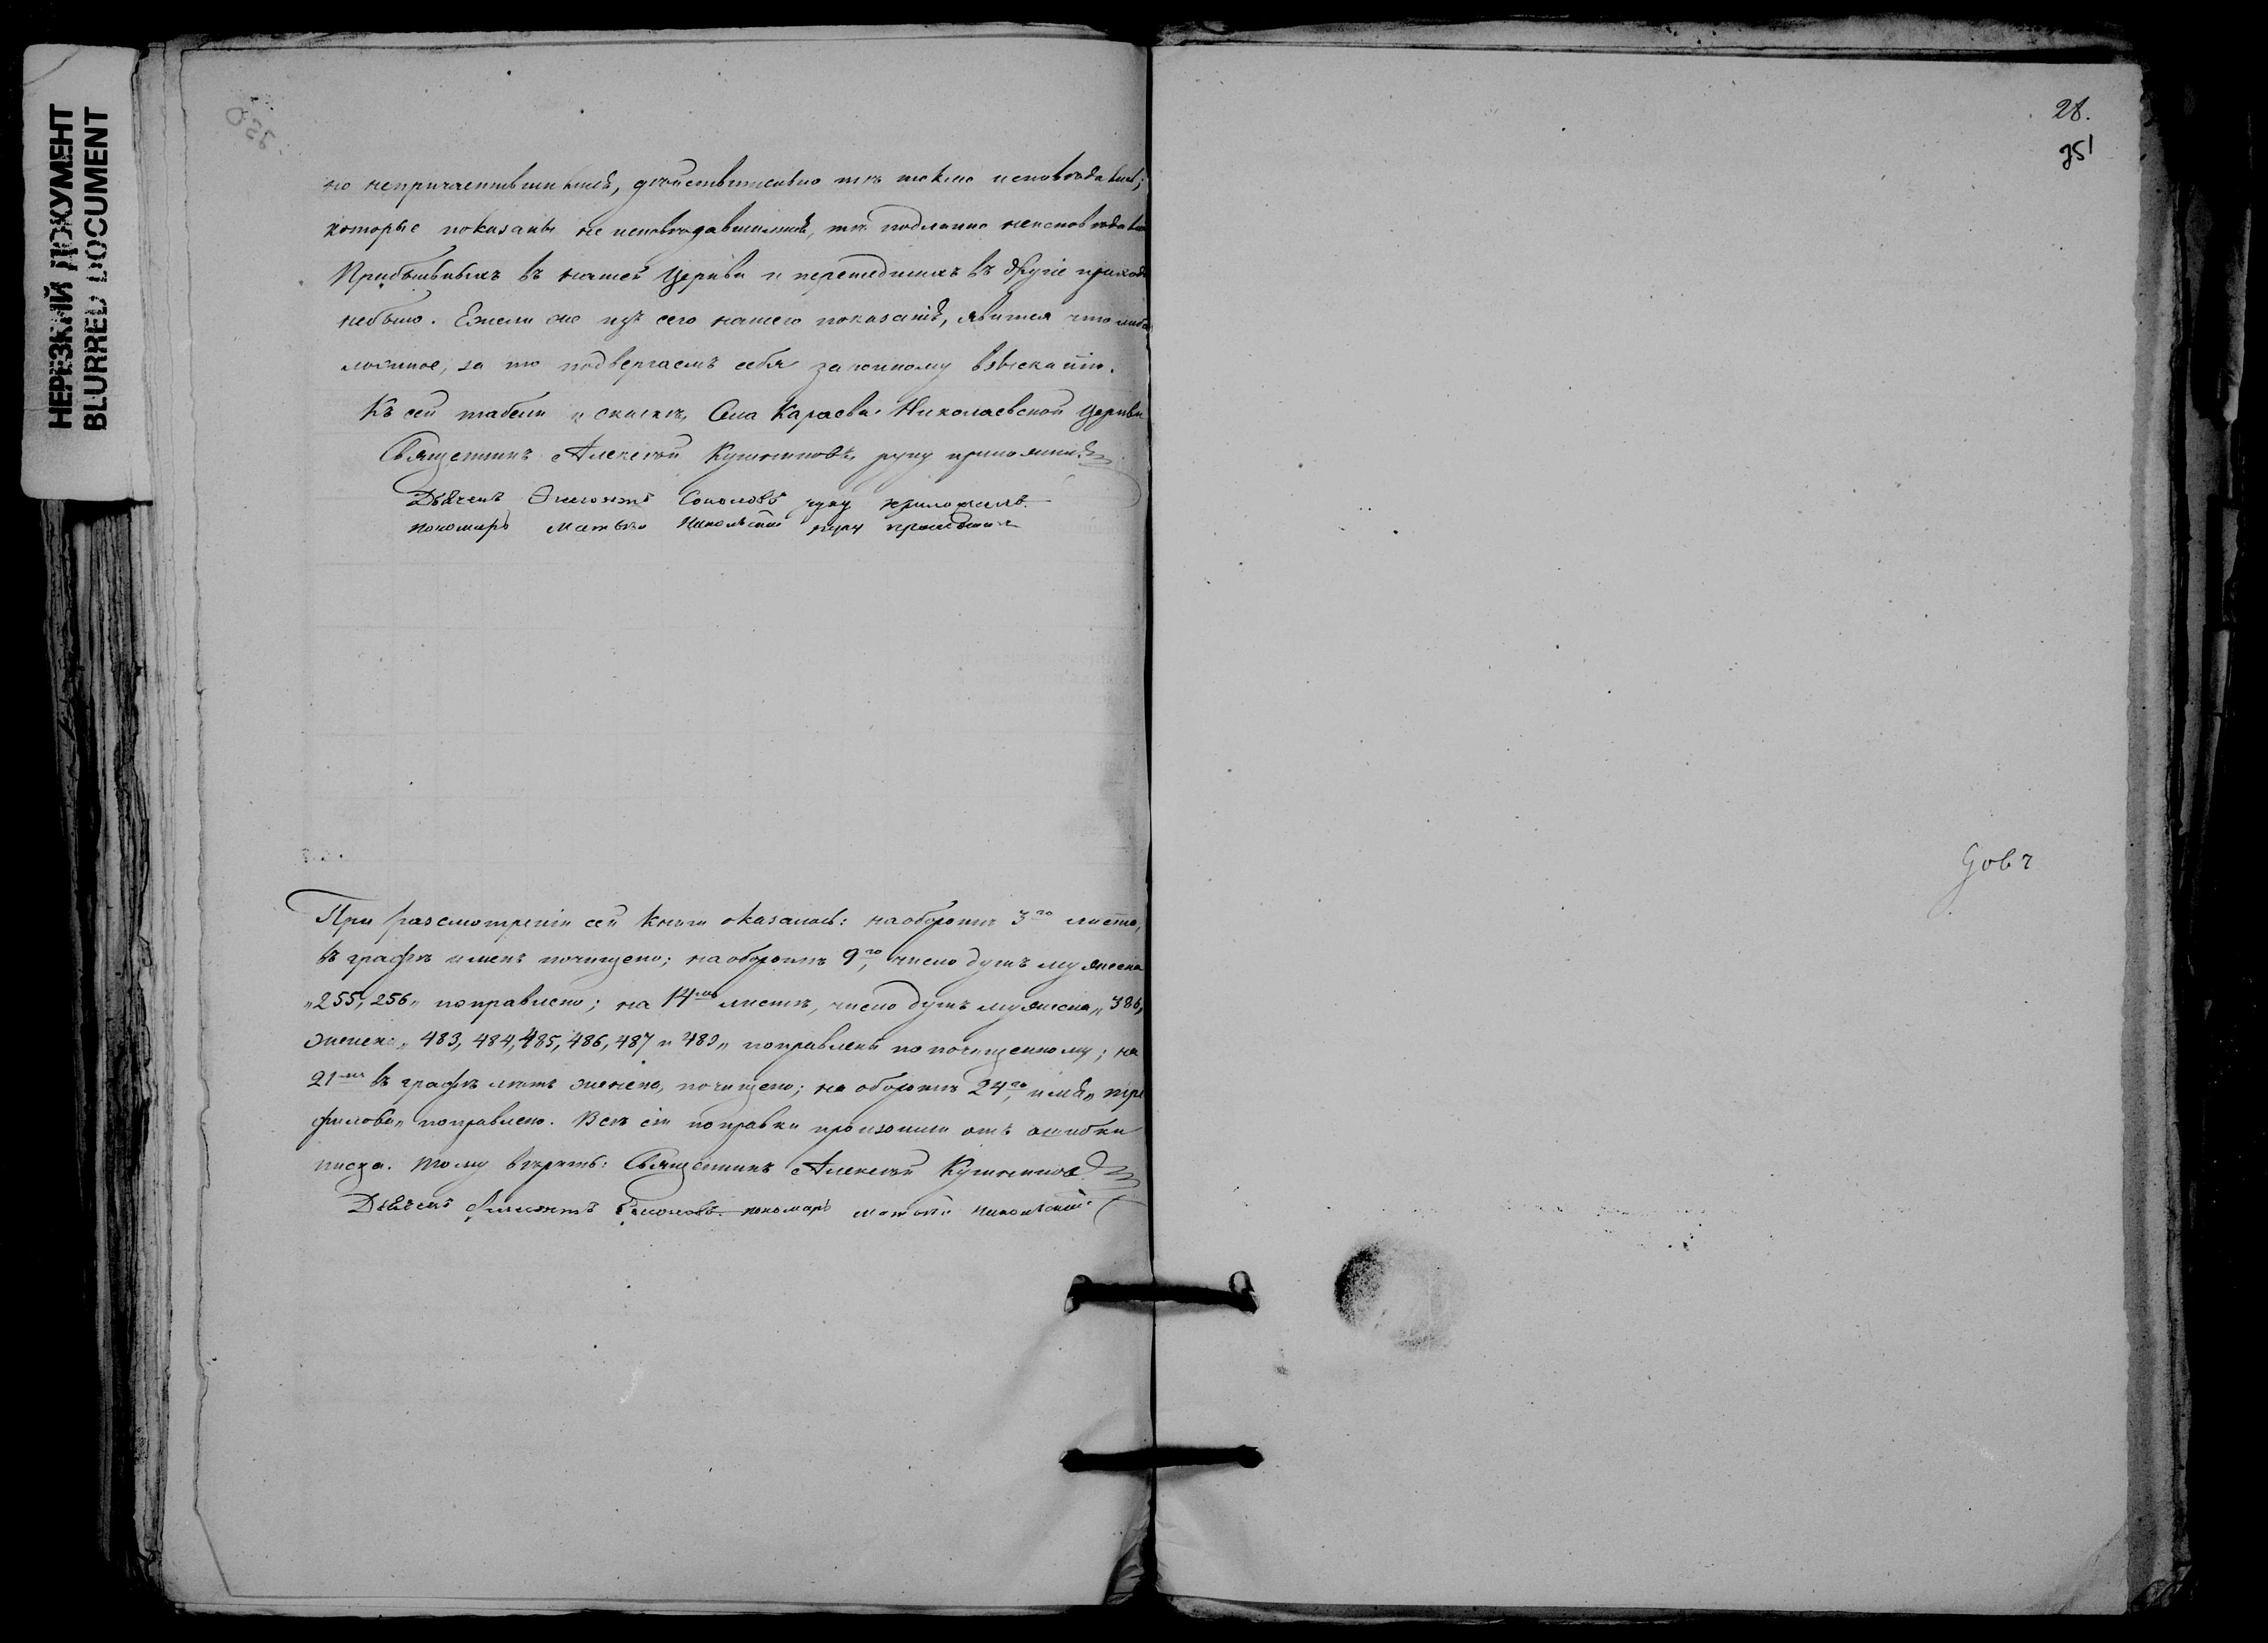 НЕРЕЗКИЙ ДОКУМЕНТ
BLURRED DOCUMENT
но непричастившимися, дѣйствительно тѣ токмо исповѣдались;
которые показаны не исповѣдавшимися, тѣ подлинно неисповѣдались
Прибывшихъ въ нашей Церкви и перешедшихъ въ другіе приходы
небыло. Ежели же изъ сего нашего показанія, явится что либо
ложное, за то подвергаемъ себя законному взысканію.
Къ сей табели и скаскѣ, Села Караева Николаевской Церкви
Священникъ Алексѣй руку приложилъ
Дьячекъ Соколовъ руку приложилъ
пономарь Матвѣй Никольский руку приложилъ
При разсмотреніи сей книги оказалось: на оборотѣ 3го листа,
въ графѣ именъ почищено; на оборотѣ 9го, число душъ мужеска
„255, 256„ поправлено; на 14мъ листѣ, число душъ мужеска„ 386,
женска„ 483, 484, 485, 486, 487 и 489„ поправлены по почищенному; на
21мъ въ графѣ лѣтъ женска, почищено; на оборотѣ 24го, имя„
филова„ поправлено. Всѣ сіи поправки произошли отъ ошибки
писца. Тому вѣрять: Священникъ Алексѣй
Дьячекъ Соколовъ. пономарь Матвѣй Никольский
28.
351